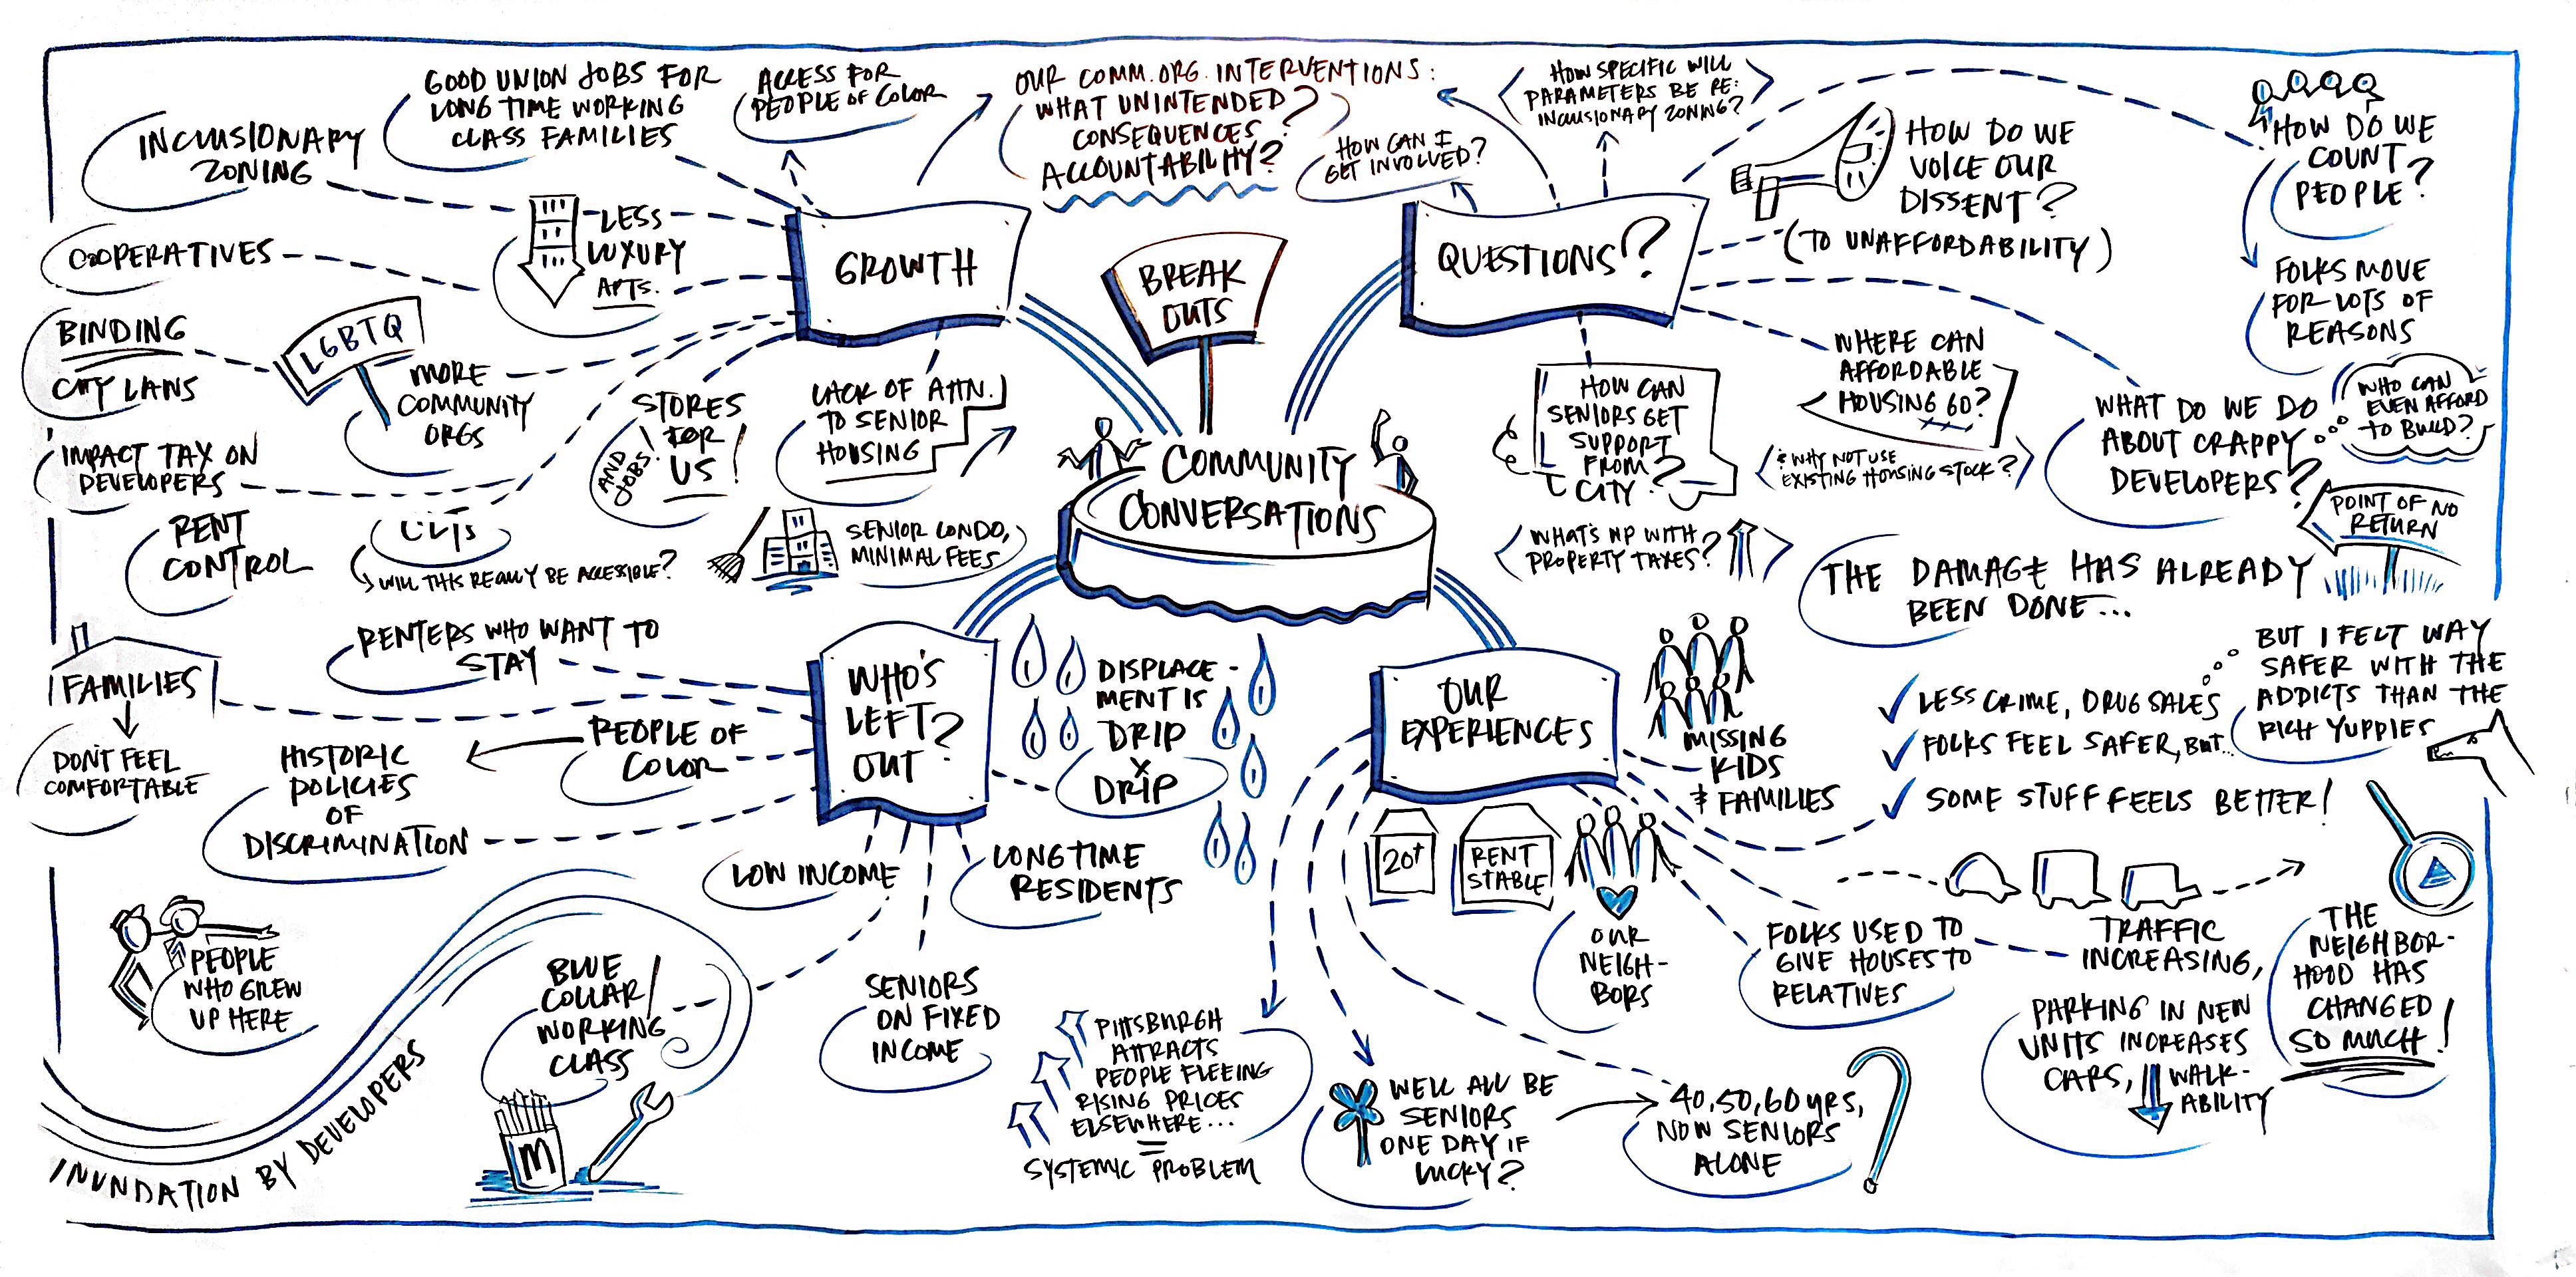 GOOD UNION JOBS FOR
LONG TIME WORKING
CLASS FAMILIES
ACCESS FOR
PEOPLE OF COLOR
INCLUSIONARY
ZONING
COOPERATIVES
LESS
LUXURY
APTS.
BINDING
CITY LANS
LGBTQ
MORE
COMMUNITY
ORGS
IMPACT TAX ON
DEVELOPERS
RENT
CONTROL
CLTs
WILL THIS REALLY BE ACCESSIBLE?
STORES
FOR
US!
AND
JOBS!
LACK OF ATTN.
TO SENIOR
HOUSING
SENIOR CONDO,
MINIMAL FEES
GROWTH
OUR COMM. ORG. INTERVENTIONS:
WHAT UNINTENDED
CONSEQUENCES?
ACCOUNTABILITY?
BREAK
OUTS
COMMUNITY
CONVERSATIONS
QUESTIONS?
HOW CAN I
GET INVOLVED?
HOW SPECIFIC WILL
PARAMETERS BE RE:
INCLUSIONARY ZONING?
HOW DO WE
VOICE OUR
DISSENT?
(TO UNAFFORDABILITY)
HOW DO WE
COUNT
PEOPLE?
FOLKS MOVE
FOR LOTS OF
REASONS
WHERE CAN
AFFORDABLE
HOUSING GO?
& WHY NOT USE
EXISTING HOUSING STOCK?
HOW CAN
SENIORS GET
SUPPORT
FROM
CITY?
WHAT'S UP WITH
PROPERTY TAXES?
WHAT DO WE DO
ABOUT CRAPPY
DEVELOPERS?
WHO CAN
EVEN AFFORD
TO BUILD?
POINT OF NO
RETURN
THE DAMAGE HAS ALREADY
BEEN DONE...
WHO'S
LEFT
OUT?
RENTERS WHO WANT TO
STAY
FAMILIES
DON'T FEEL
COMFORTABLE
PEOPLE OF
COLOR
HISTORIC
POLICIES
OF
DISCRIMINATION
LOW INCOME
LONG TIME
RESIDENTS
DISPLACE-
MENT IS
DRIP
X
DRIP
SENIORS
ON FIXED
INCOME
BLUE
COLLAR/
WORKING
CLASS
M
PEOPLE
WHO GREW
UP HERE
INUNDATION BY DEVELOPERS
OUR
EXPERIENCES
MISSING
KIDS
& FAMILIES
LESS CRIME, DRUG SALES
FOLKS FEEL SAFER, BUT...
SOME STUFF FEELS BETTER!
BUT I FELT WAY
SAFER WITH THE
ADDICTS THAN THE
RICH YUPPIES
20+
RENT
STABLE
OUR
NEIGH-
BORS
FOLKS USED TO
GIVE HOUSES TO
RELATIVES
TRAFFIC
INCREASING,
PARKING IN NEW
UNITS INCREASES
CARS,
WALK-
ABILITY
THE
NEIGHBOR-
HOOD HAS
CHANGED
SO MUCH!
PITTSBURGH
ATTRACTS
PEOPLE FLEEING
RISING PRICES
ELSEWHERE...
=
SYSTEMIC PROBLEM
WE'LL ALL BE
SENIORS
ONE DAY IF
LUCKY?
40, 50, 60 YRS,
NOW SENIORS
ALONE